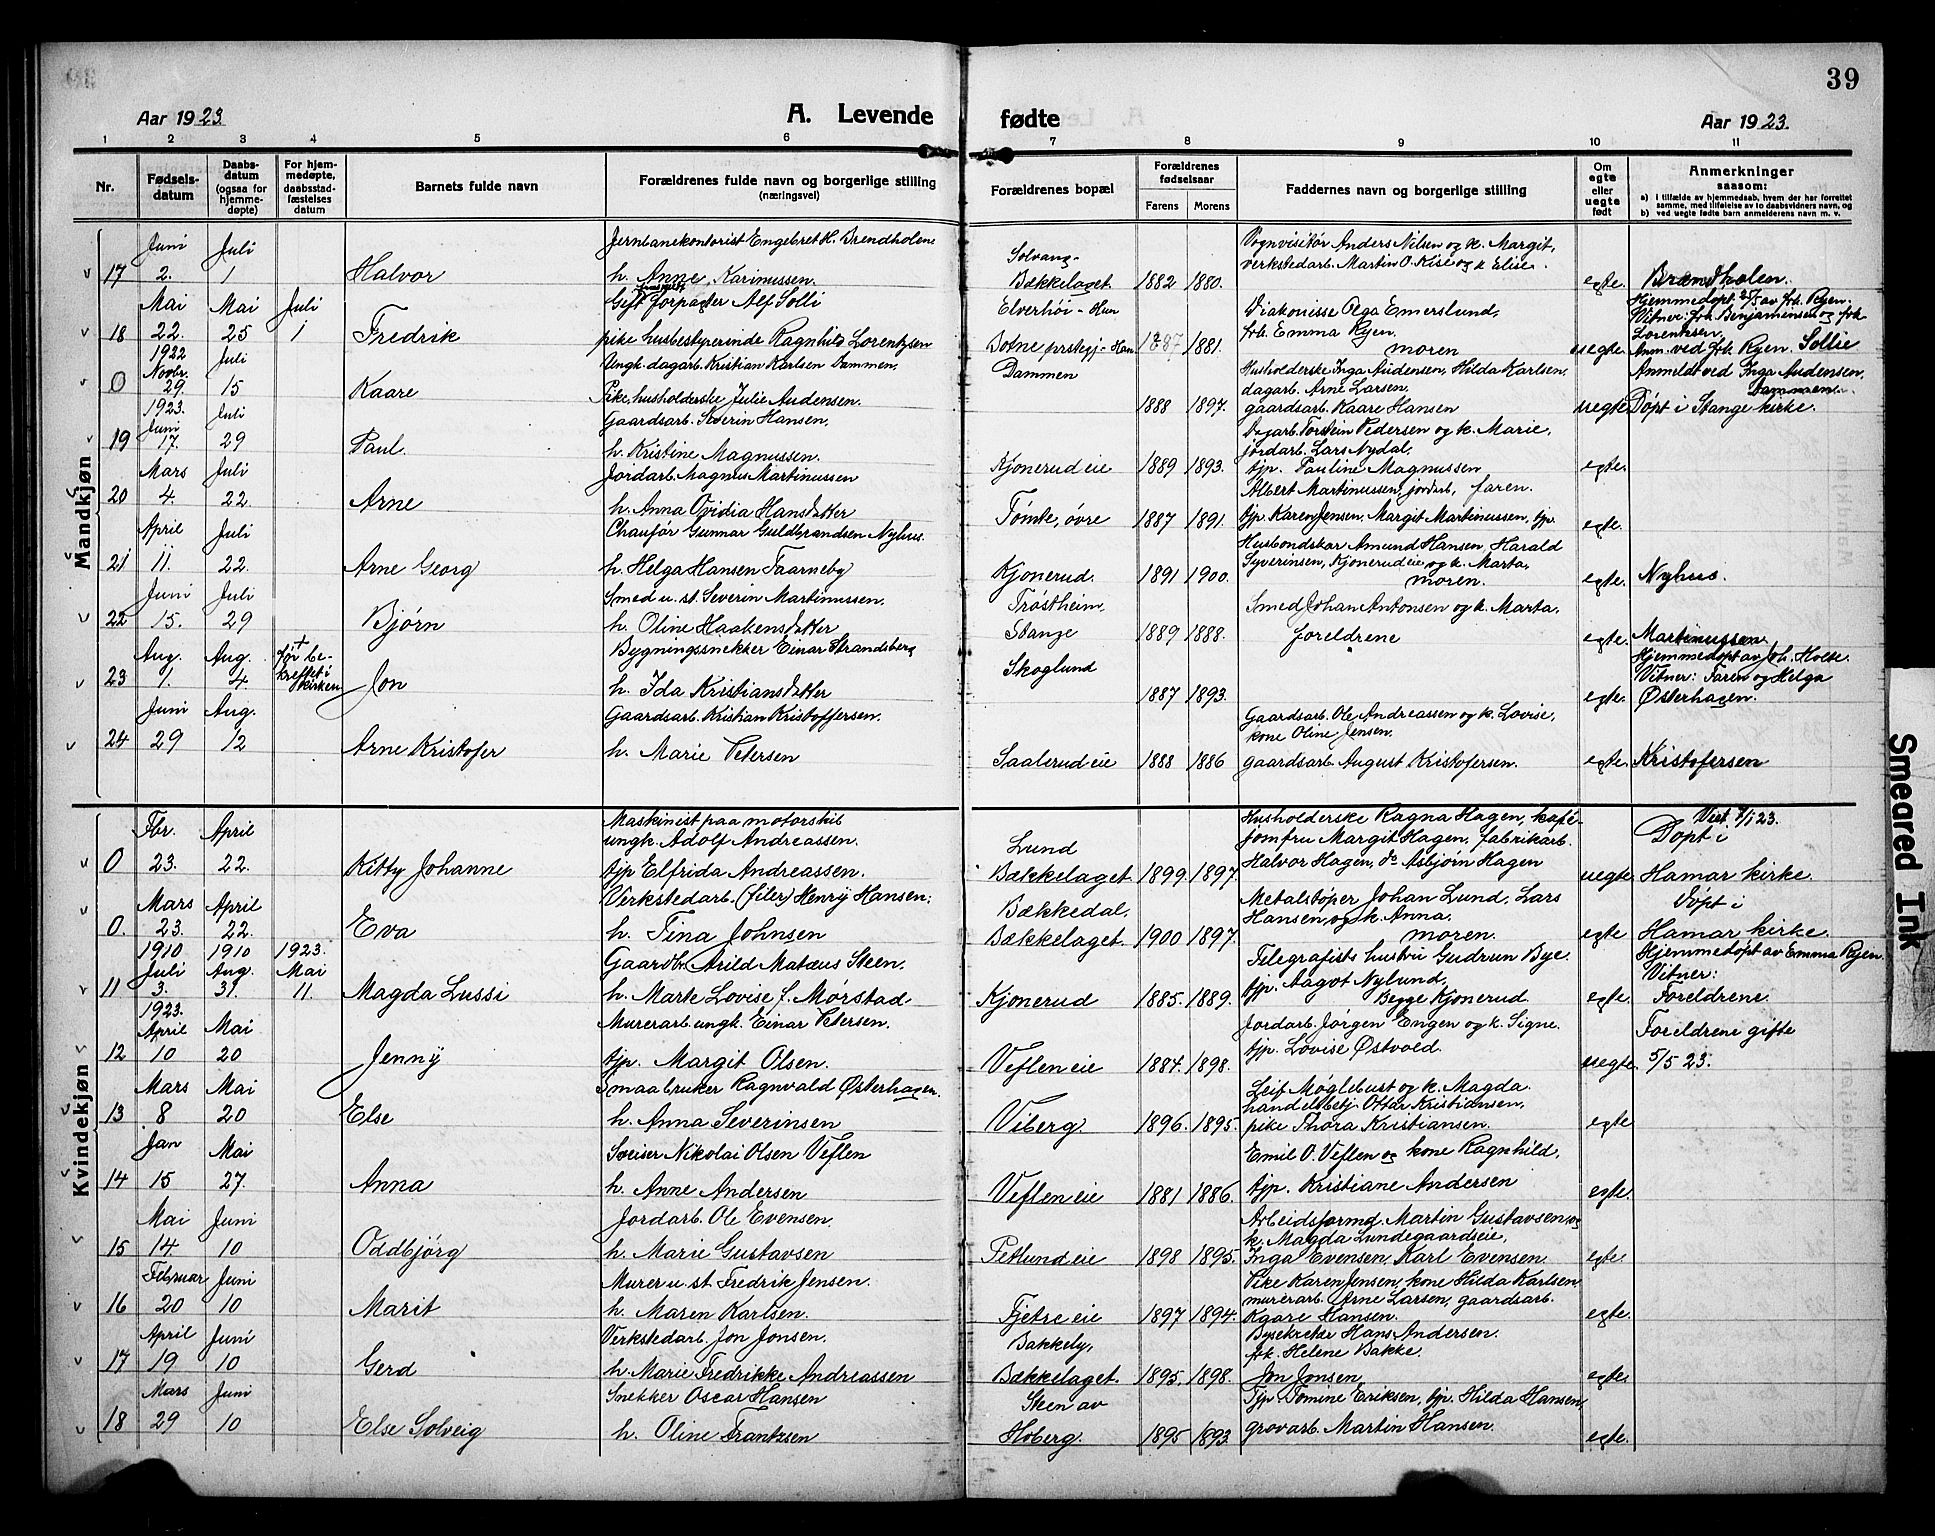 39
Aar 1923.
A. Levende fødte
Aar 1923.
1 2 3 4 5 6 7 8 9 10 11
Nr.
Fødsels-
datum
Daabs-
datum
(ogsaa for
hjemme-
døpte)
For hjem-
medøpte,
daabsstad-
fæstelses
datum
Barnets fulde navn
Forældrenes fulde navn og borgerlige stilling
(næringsvei)
Forældrenes bopæl
Forældrenes
fødselsaar
Farens Morens
Faddernes navn og borgerlige stilling
Om
egte
eller
uegte
født
Anmerkninger
saasom:
a) i tilfælde av hjemmedaab, hvem der har forrettet
samme, med tilføielse av to daabsvidners navn, og
b) ved uegte fødte barn anmelderens navn m. v.
Mandkjøn
Juni Juli Jernbanekontorist Engebret H. Brendholene Solvang- Vognvisitør Anders Nilsen og k. Margit,
verkstedarb. Martin O. Kise og k. Elise.
17 2. 1 Halvor h. Anne Karimussen. Bækkelaget 1882 1880. egte. Brændholen.
Mai Mai Juli Gift forpagter Alf Solli Elverhøi - Hun Diakonisse Olga Emerslund, Hjemmedøpt 25/5 av frk. Ryen.
Vitner: frk. Benjaminsen og frk.
18 22. 25 1 Fredrik pike husbestyrerinde Ragnhild Lorentzen Botne prstegj - Han 1887 1881. frk. Emma Ryen, Lorentzen.
moren uegte. Anm. ved frk. Ryen. Sollie
1922 Novbr. Juli Ungk. dagarb. Kristian Karlsen Dammen. Dammen Husholderske Inga Audensen, Hilda Karlsen, Anmeldt ved Inga Audensen,
0 29. 15 Kaare Pike, husholderske Julie Audensen. dagarb. Arne Larsen. Dammen.
1888 1897. gaardsarb. Kaare Hansen uegte Døpt i Stange kirke.
1923. Juni Juli Gaardsarb. Severin Hansen. Dagarb. Torstein Pedersen og k. Marie,
19 17. 29 Paul. h. Kristine Magnussen. jordarb. Lars Nydal,
Kjonerud eie 1889 1893. tjp. Pauline Magnussen egte.
Mars Juli Jordarb. Magnus Martinussen Albert Martinussen, jordarb, faren.
20 4. 22. Arne h. Anna Ovidia Hansdatter Tømte, øvre 1887 1891. tjp. Karen Jensen, Margit Martinussen, tjp. egte.
April Juli Chaufør Gunnar Guldbrandsen Nyhus. Husbondskar Amund Hansen, Harald
21 11. 22. Arne Georg h. Helga Hansen Taarneby Kjonerud. 1891 1900. Syverinsen, Kjonerudeie og k. Marta,
moren. egte. Nyhus.
Juni Juli Smed u. st. Severin Martinussen. Trøstheim, Smed Johan Antonsen og k. Marta.
22 15. 29 Bjørn h. Oline Haakensdatter Stange 1889 1888. foreldrene egte. Martinussen
Aug. Aug. + før be- Bygningssnekker Einar Strandsberg Skoglund Hjemmedøpt av Joh. Holte.
kreftet i kirken
23 1. 4. Jon h. Ida Kristiansdatter 1887 1893. Vitner: Faren og Helga
egte. Østerhagen.
Juni Aug. Gaardsarb. Kristian Kristoffersen. Gaardsarb. Ole Andreassen og k. Lovise,
kone Oline Jensen.
24 29 12 Arne Kristofer h. Marie Petersen Saalerud eie 1888 1886 gaardsarb. August Kristofersen. egte. Kristofersen
Kvindekjøn
Fbr. April Maskinist paa motorskib Husholderske Ragna Hagen, kafé- Vist. 7/1 23.
ungk. Adolf Andreassen. Lund jomfru Margit Hagen, fabrikarb. Døpt i
0 23. 22. Kitty Johanne tjp Elfrida Andreassen. Bækkelaget 1899. 1897. Halvor Hagen, do Asbjørn Hagen uegte. Hamar kirke
Mars April Verkstedarb. (filer) Henry Hansen. Bækkedal. Metalstøper Johan Lund, Lars Døpt i
0. 23. 22. Eva h. Tina Johnsen Bækkelaget. 1900 1897. Hansen og k. Anna.
moren. egte Hamar kirke.
1910 Juli 1910 Aug. 1923. Mai Gaardbr. Arild Matæus Steen. Telegrafists hustru Gudrun Bye, Hjemmedøpt av Emma Ryen.
11 3. 31. 11. Magda Lussi h. Marte Lovise f. Mørstad Kjonerud 1885. 1889. tjp. Aagot Nylund, Vitner:
Begge Kjonerud. egte. Foreldrene.
1923. April Mai Murerarb. ungk. Einar Petersen. Jordarb. Jørgen Engen og k. Signe. Foreldrene gifte
12 10 20 Jenny tjp. Margit Olsen. Veflen eie 1884. 1898. tjp. Lovise Østvold. uegte. 5/5 23.
Mars Mai Smaabruker Ragnvald Østerhagen. Leif Møglebust og k. Magda.
13 8 20 Else h. Anna Severinsen Viberg. 1896. 1895. handelsbetj. Ottar Kristiansen,
pike Thora Kristiansen. egte
Jan Mai Sveiser Nikolai Olsen Veflen Emil O. Veflen og kone Ragnhild,
14 15 27. Anna h. Anne Andersen Veflen eie 1881 1886. tjp. Kristiane Andersen egte.
Mai Juni Jordarb. Ole Evensen. Arbeidsformd. Martin Gustavsen og
k. Magda Lundegaardseie,
15 14 10 Oddbjørg h. Marie Gustavsen Petlund eie 1898 1895. Inga Evensen, Karl Evensen. egte.
Februar Juni Murer u. st. Fredrik Jensen. Pike Karen Jensen, kone Hilda Karlsen
murerarb. Arne Larsen, gaardsarb.
16 20 10 Marit h. Maren Karlsen. Fjetre eie 1897 1894. Kaare Hansen. egte.
April Juni Verkstedarb. Jon Jonsen. Bakkely, Bysekretær Hans Andersen.
frk. Helene Bakke.
17 19 10 Gerd h. Marie Fredrikke Andreassen Bækkelaget. 1895. 1898. Jon Jonsen egte.
Mars Juni Snekker Oscar Hansen Steen av Tjp Tomine Eriksen, tjp. Hilda Hansen,
18 29 10 Else Solveig h. Oline Frantzsen Hoberg. 1895 1893. grovarb. Martin Hansen. egte.
Smeared Ink